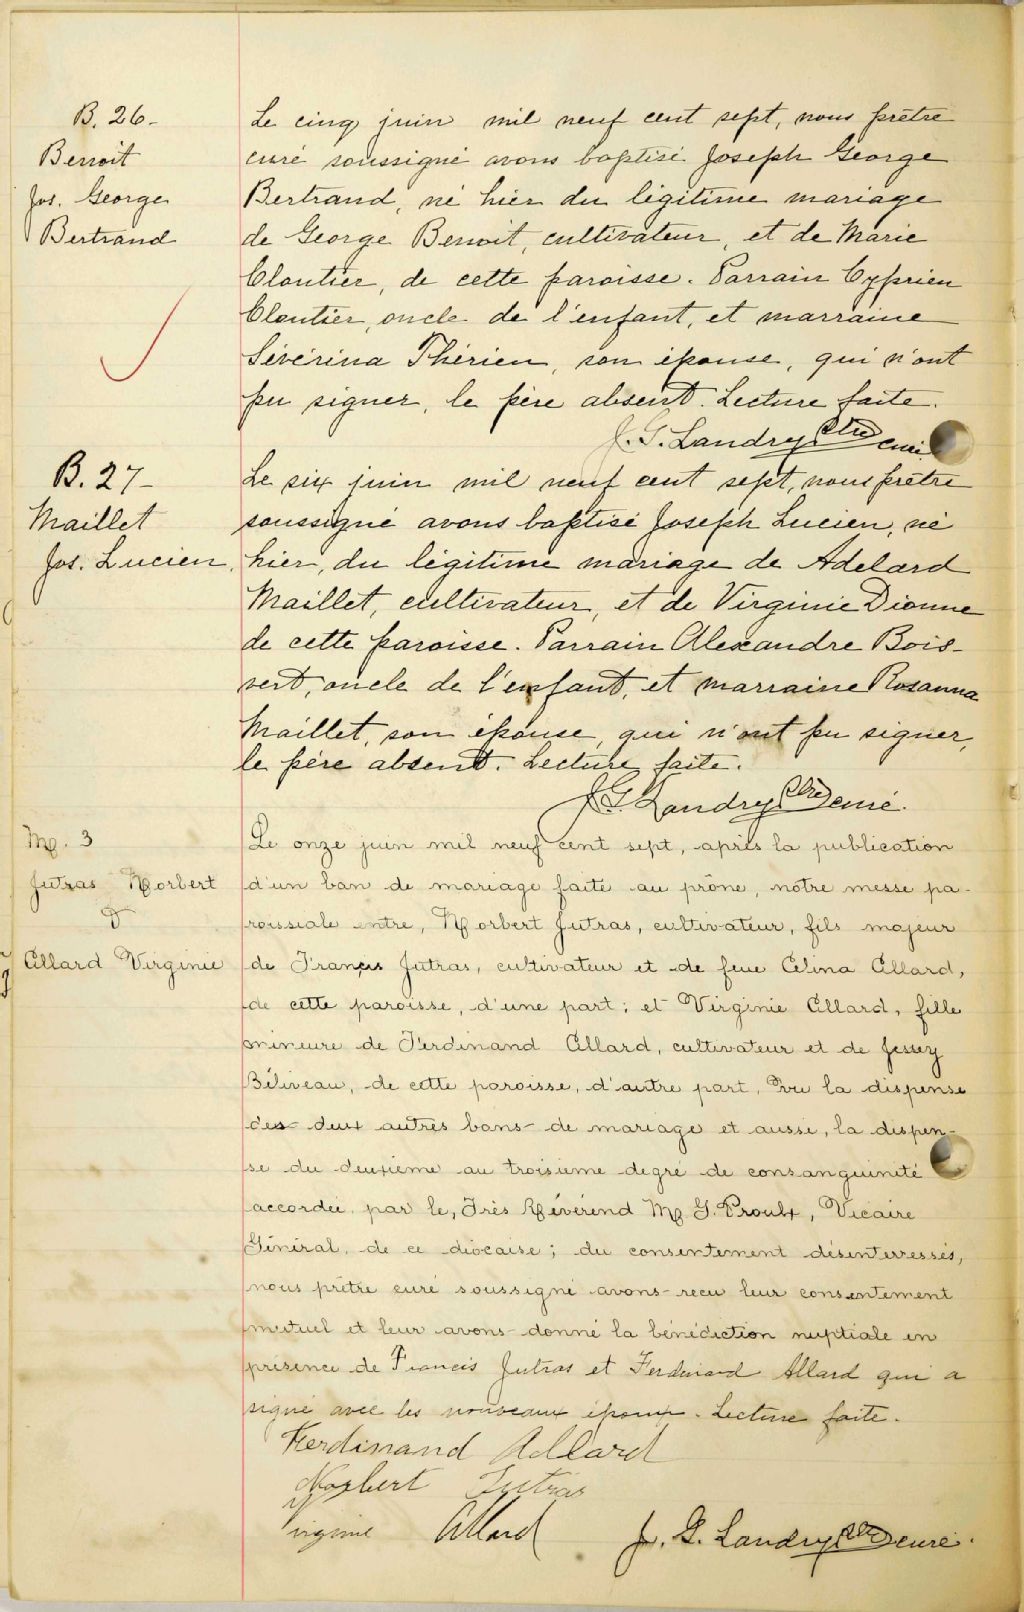 B. 26-
Benoit
Jos. George
Bertrand
Le cinq juin mil neuf cent sept, nous prêtre
curé soussigné avons baptisé Joseph George
Bertrand, né hier du légitime mariage
de George Benoit, cultivateur, et de Marie
Cloutier, de cette paroisse. Parrain Cyprien
Cloutier, oncle de l'enfant, et marraine
Sévérina Thérien, son épouse, qui n'ont
pu signer, le père absent. Lecture faite.
J. G. Landry Ptre curé
B. 27-
Maillet
Jos. Lucien,
Le six juin mil neuf cent sept, nous prêtre
soussigné avons baptisé Joseph Lucien, né
hier, du légitime mariage de Adelard
Maillet, cultivateur, et de Virginie Dionne
de cette paroisse. Parrain Alexandre Bois-
vert, oncle de l'enfant, et marraine Rosanna
Maillet, son épouse, qui n'ont pu signer,
le père absent. Lecture faite.
J. G. Landry Ptre curé.
M. 3
Jutras Norbert
&
Allard Virginie
Le onze juin mil neuf cent sept, après la publication
d'un ban de mariage faite au prône, nôtre messe pa-
roissiale entre, Norbert Jutras, cultivateur, fils majeur
de Francis Jutras, cultivateur et de feue Célina Allard,
de cette paroisse, d'une part; et Virginie Allard, fille
mineure de Ferdinand Allard, cultivateur et de Jessey
Béliveau, de cette paroisse, d'autre part, Vu la dispense
des deux autres bans de mariage et aussi, la dispen-
se du deuxième au troisième degré de consanguinité
accordée par le, Très Révérend M. G. Proulx, Vicaire
Général, de ce diocaise; du consentement désinterressés,
nous prêtre curé soussigné avons recu leur consentement
mutuel et leur avons donné la bénédiction nuptiale en
présence de Francis Jutras et Ferdinand Allard qui a
signé avec les nouveaux époux. Lecture faite.
Ferdinand Allard
Norbert Jutras
Virginie Allard
J. G. Landry Ptre curé.